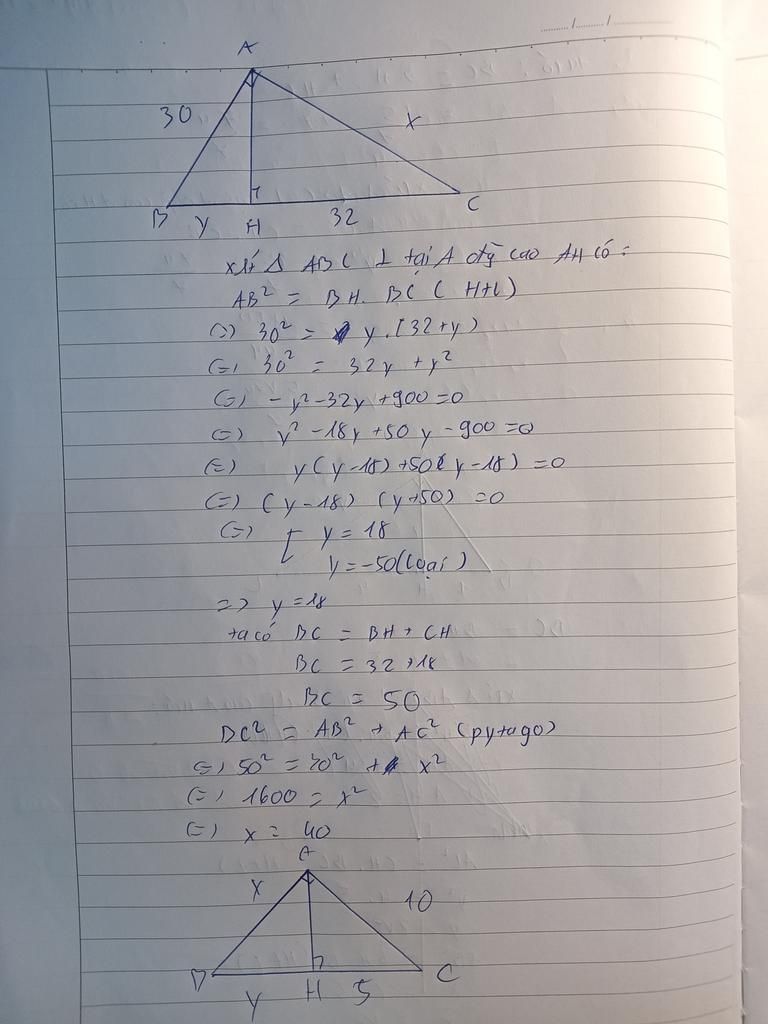 A
30
x
B
y
H
32
C
xét Δ ABC ⊥ tại A đg cao AH có:
AB² = BH. BC ( HTL)
(=) 30² = y.(32+y)
(=) 30² = 32y + y²
(=) -y²-32y +900=0
(=) y² -18y +50 y -900 =0
(=) y(y-18) +50(y-18) =0
(=) (y-18) (y+50) =0
(=) [ y = 18
y =-50(loại)
=> y =18
ta có BC = BH + CH
BC = 32 +18
BC = 50
BC² = AB² + AC² (pytago)
(=) 50² = 30² + x²
(=) 1600 = x²
(=) x = 40
A
x
10
B
y
H
5
C